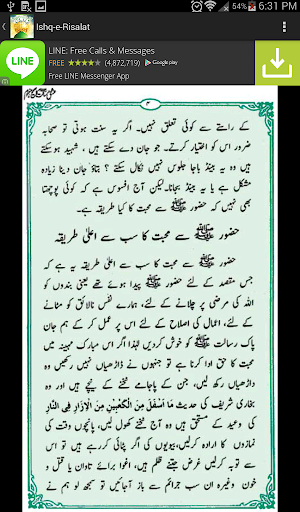 6:31 PM
Ishq-e-Risalat
LINE: Free Calls & Messages
FREE ★★★★★ (4,872,719) Google play
Free LINE Messenger App
LINE
۳
کے راستے سے کوئی تعلق نہیں۔ اگر یہ سنت ہوتی تو صحابہ
ضرور اس کو اختیار کرتے۔ جو جان دے سکتے ہیں، شہید ہوسکتے
ہیں وہ یہ بینڈ باجا جلوس نہیں نکال سکتے؟ بتاؤ جان دینا زیادہ
مشکل ہے یا یہ بینڈ بجانا۔ لیکن آج افسوس ہے کہ کوئی پوچھتا
بھی نہیں کہ حضور ﷺ سے محبت کا کیا طریقہ ہے۔
حضور ﷺ سے محبت کا سب سے اعلیٰ طریقہ
حضور ﷺ سے محبت کا سب سے اعلیٰ طریقہ یہ ہے کہ
جس مقصد کے لئے حضور ﷺ پیدا ہوئے تھے یعنی بندوں کو
اللہ کی مرضی پر چلانے کے لئے، ہمارے نفس نالائق کو مٹانے
کے لئے، اعمال کی اصلاح کے لئے اس پر عمل کر کے ہم جان
پاک رسالت ﷺ کو خوش کردیں لہٰذا اگر اس مبارک مہینہ میں
محبت کا حق ادا کرنا ہے تو جنہوں نے داڑھیاں نہیں رکھیں وہ
داڑھیاں رکھ لیں، جن کے پاجامے ٹخنے کے نیچے ہیں اور وہ
بخاری شریف کی حدیث مَا اَسْفَلَ مِنَ الْکَعْبَیْنِ مِنَ الْاِزَارِ فِی النَّارِ
کی وعید کے مستحق ہیں وہ آج ٹخنے کھول لیں، پانچوں وقت کی
نمازوں کا ارادہ کرلیں، بیویوں کی اگر پٹائی کررہے ہیں تو اس
سے توبہ کرلیں غرض جتنے ظلم ہیں، اغوا برائے تاوان یا قتل و
خون وغیرہ ان سب جرائم سے باز آجائیں تو سمجھ لو ہم نے